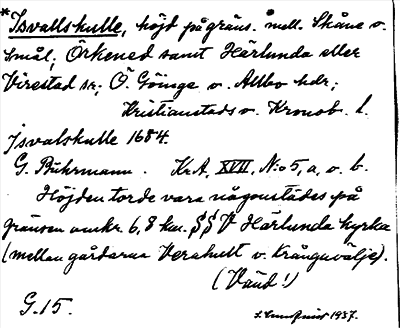 *Isvallskulle, höjd på gräns. mell. Skåne o.
Smål; Örkened samt Härlunda eller
Virestad sr; Ö. Göinge o. Allbo hdr;
Kristianstads o. Kronob. l.
Isvalskulle 1684.
G. Buhrmann. KrA, XVII, N:o 5, a, o. b.
Höjden torde vara någonstädes på
gränsen omkr. 6,8 km. SSV Härlunda kyrka
(mellan gårdarna Verahult o. Krångnvälje).
(Vänd!)
G. 15.
1937.